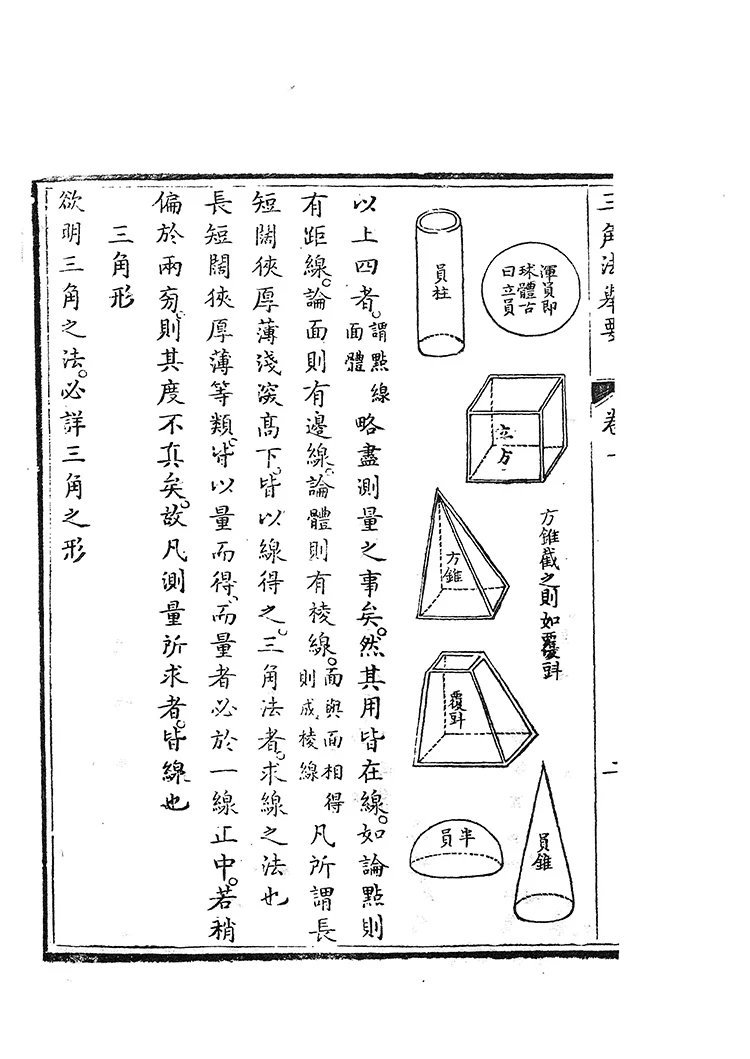 三角法舉要
卷一
二
渾員即
球體古
曰立員
員柱
立方
方錐截之則如覆㪷
方錐
覆㪷
員錐
半員
以上四者謂點線面體略盡測量之事矣然其用皆在線如論點則
有距線論面則有邊線論體則有棱線面與面相得則成棱線凡所謂長
短闊狹厚薄淺深高下皆以線得之三角法者求線之法也
長短闊狹厚薄等類皆以量而得而量者必於一線正中若稍
偏於兩旁則其度不真矣故凡測量所求者皆線也
三角形
欲明三角之法必詳三角之形